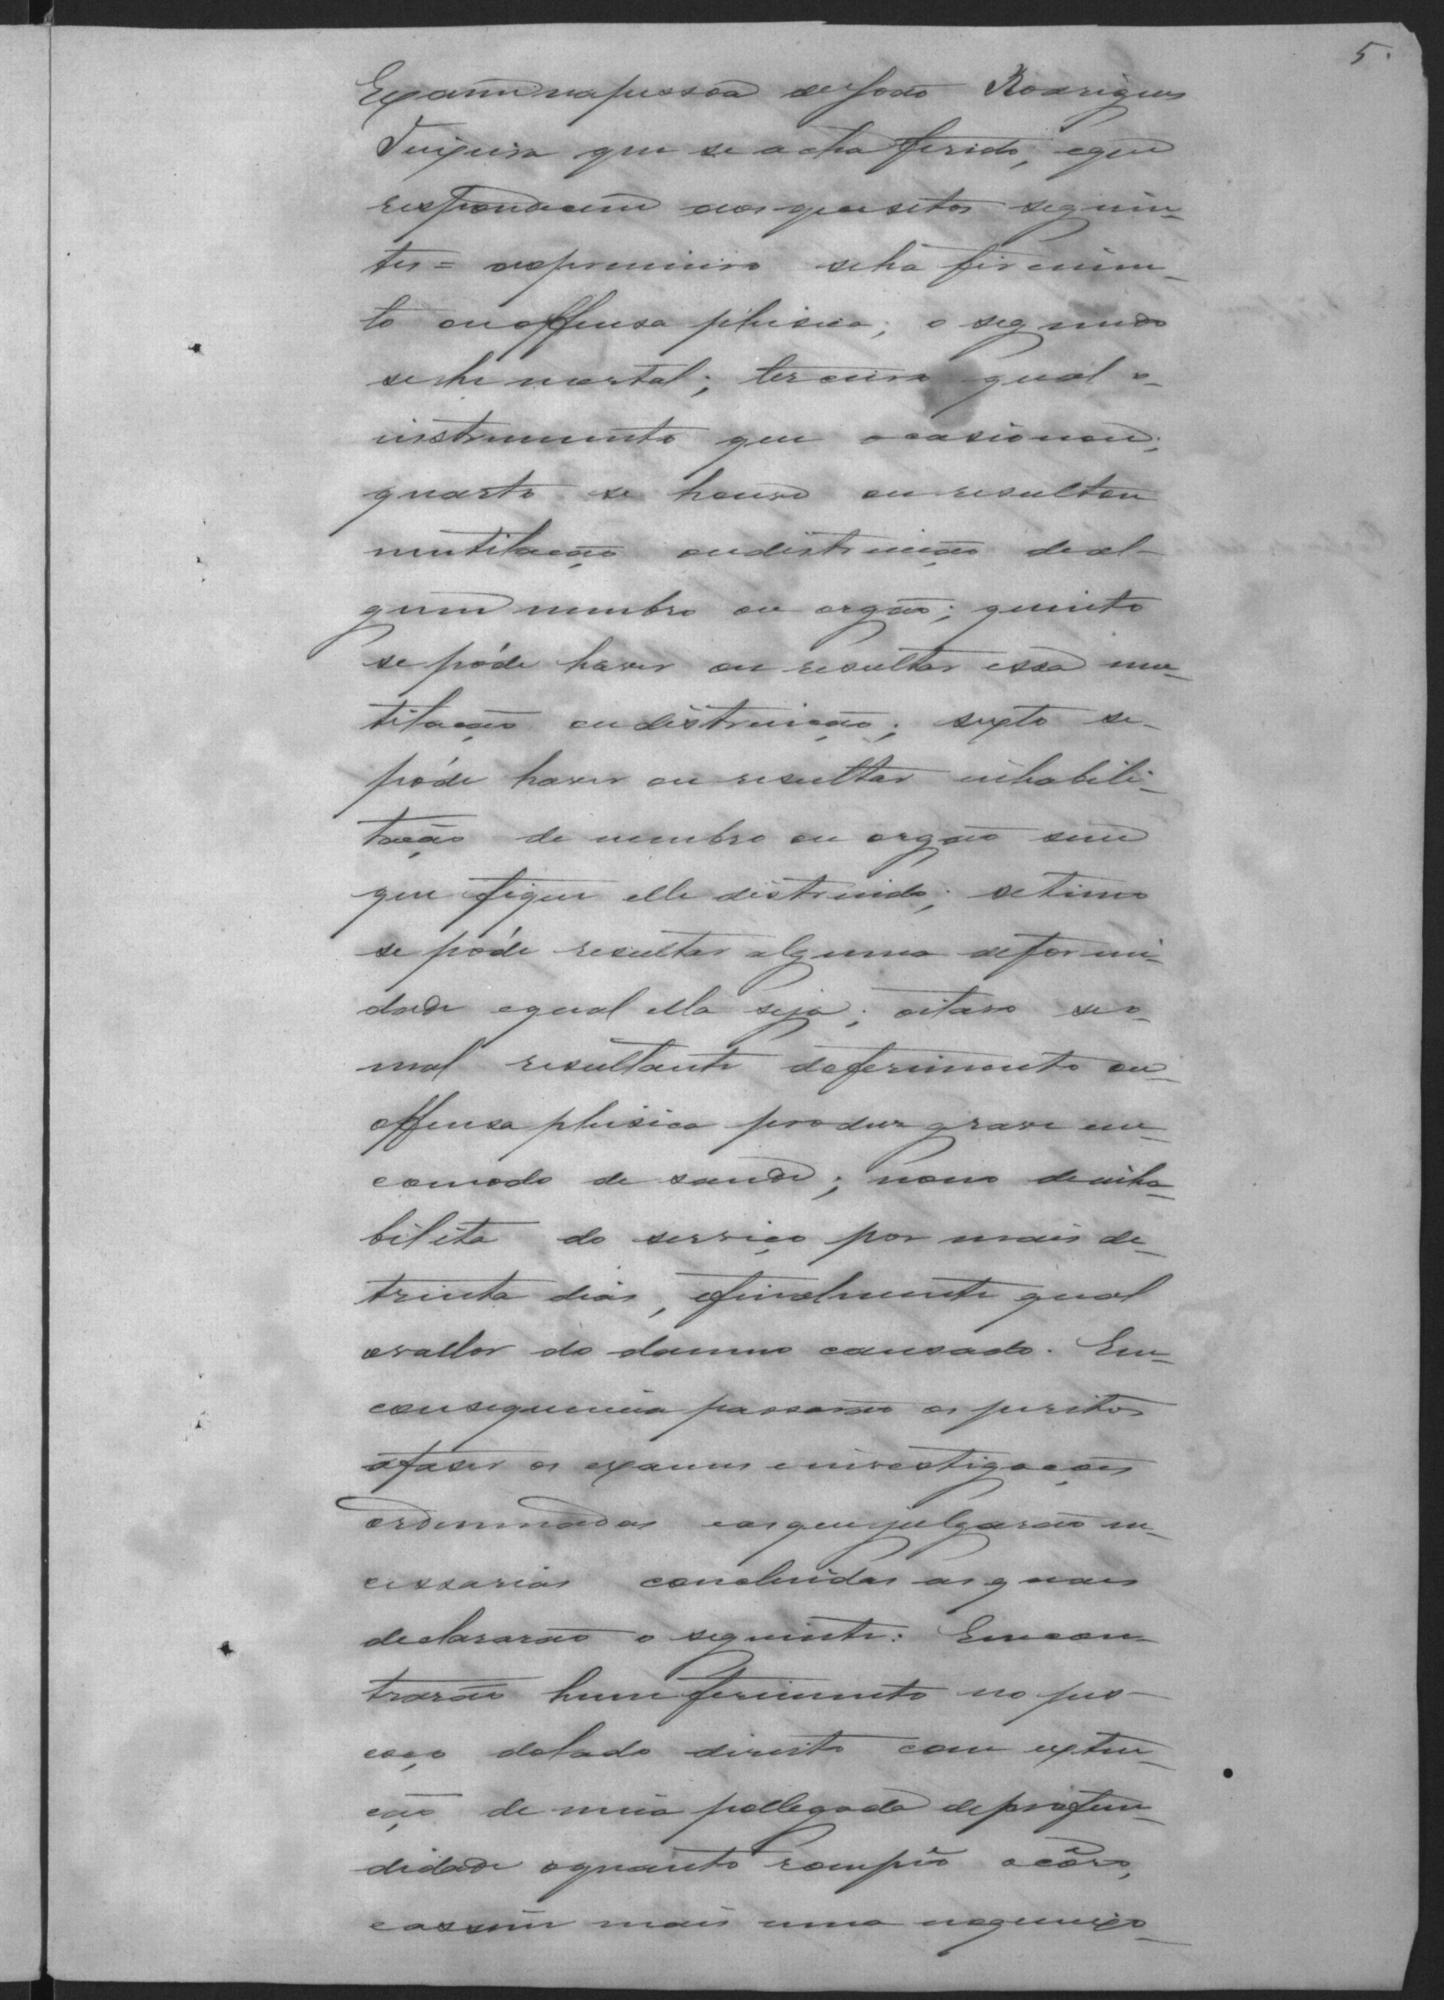 5.
Exame na pessoa de João Rodrigues
Teixeira que se acha ferido, e que
respondaem aos quesitos seguin-
tes = ao primeiro se há ferimen-
to ou offensa phisica; o segundo
se he mortal; terceiro qual o
instrumento que ocasionou;
quarto se houve ou resultou
mutilação ou distruição de al-
gum membro ou orgão; quinto
se póde haver ou resultar essa mu-
tilação ou distruição; sexto se
póde haver ou resultar inhabili-
tação de membro ou orgão sem
que fique elle distruido; setimo
se póde resultar alguma deformi-
dade e qual ella seja; oitavo se o
mal resultante do ferimento ou
offensa phisica produz grave en-
comodo de saude; nono se inha-
bilita do serviço por mais de
trinta dias, e finalmente qual
o vallor do damno causado. Em
consequencia passarão os peritos
a fazer os exames e investigações
ordenadas e as que julgarão ne-
cessarias concluidas as quaes
declararão o seguinte: Encon-
trarão hum ferimento no pes-
coço do lado direito com exten-
ção de meia pollegada de profun-
didade o quanto rompeo o côro,
e assim mais uma